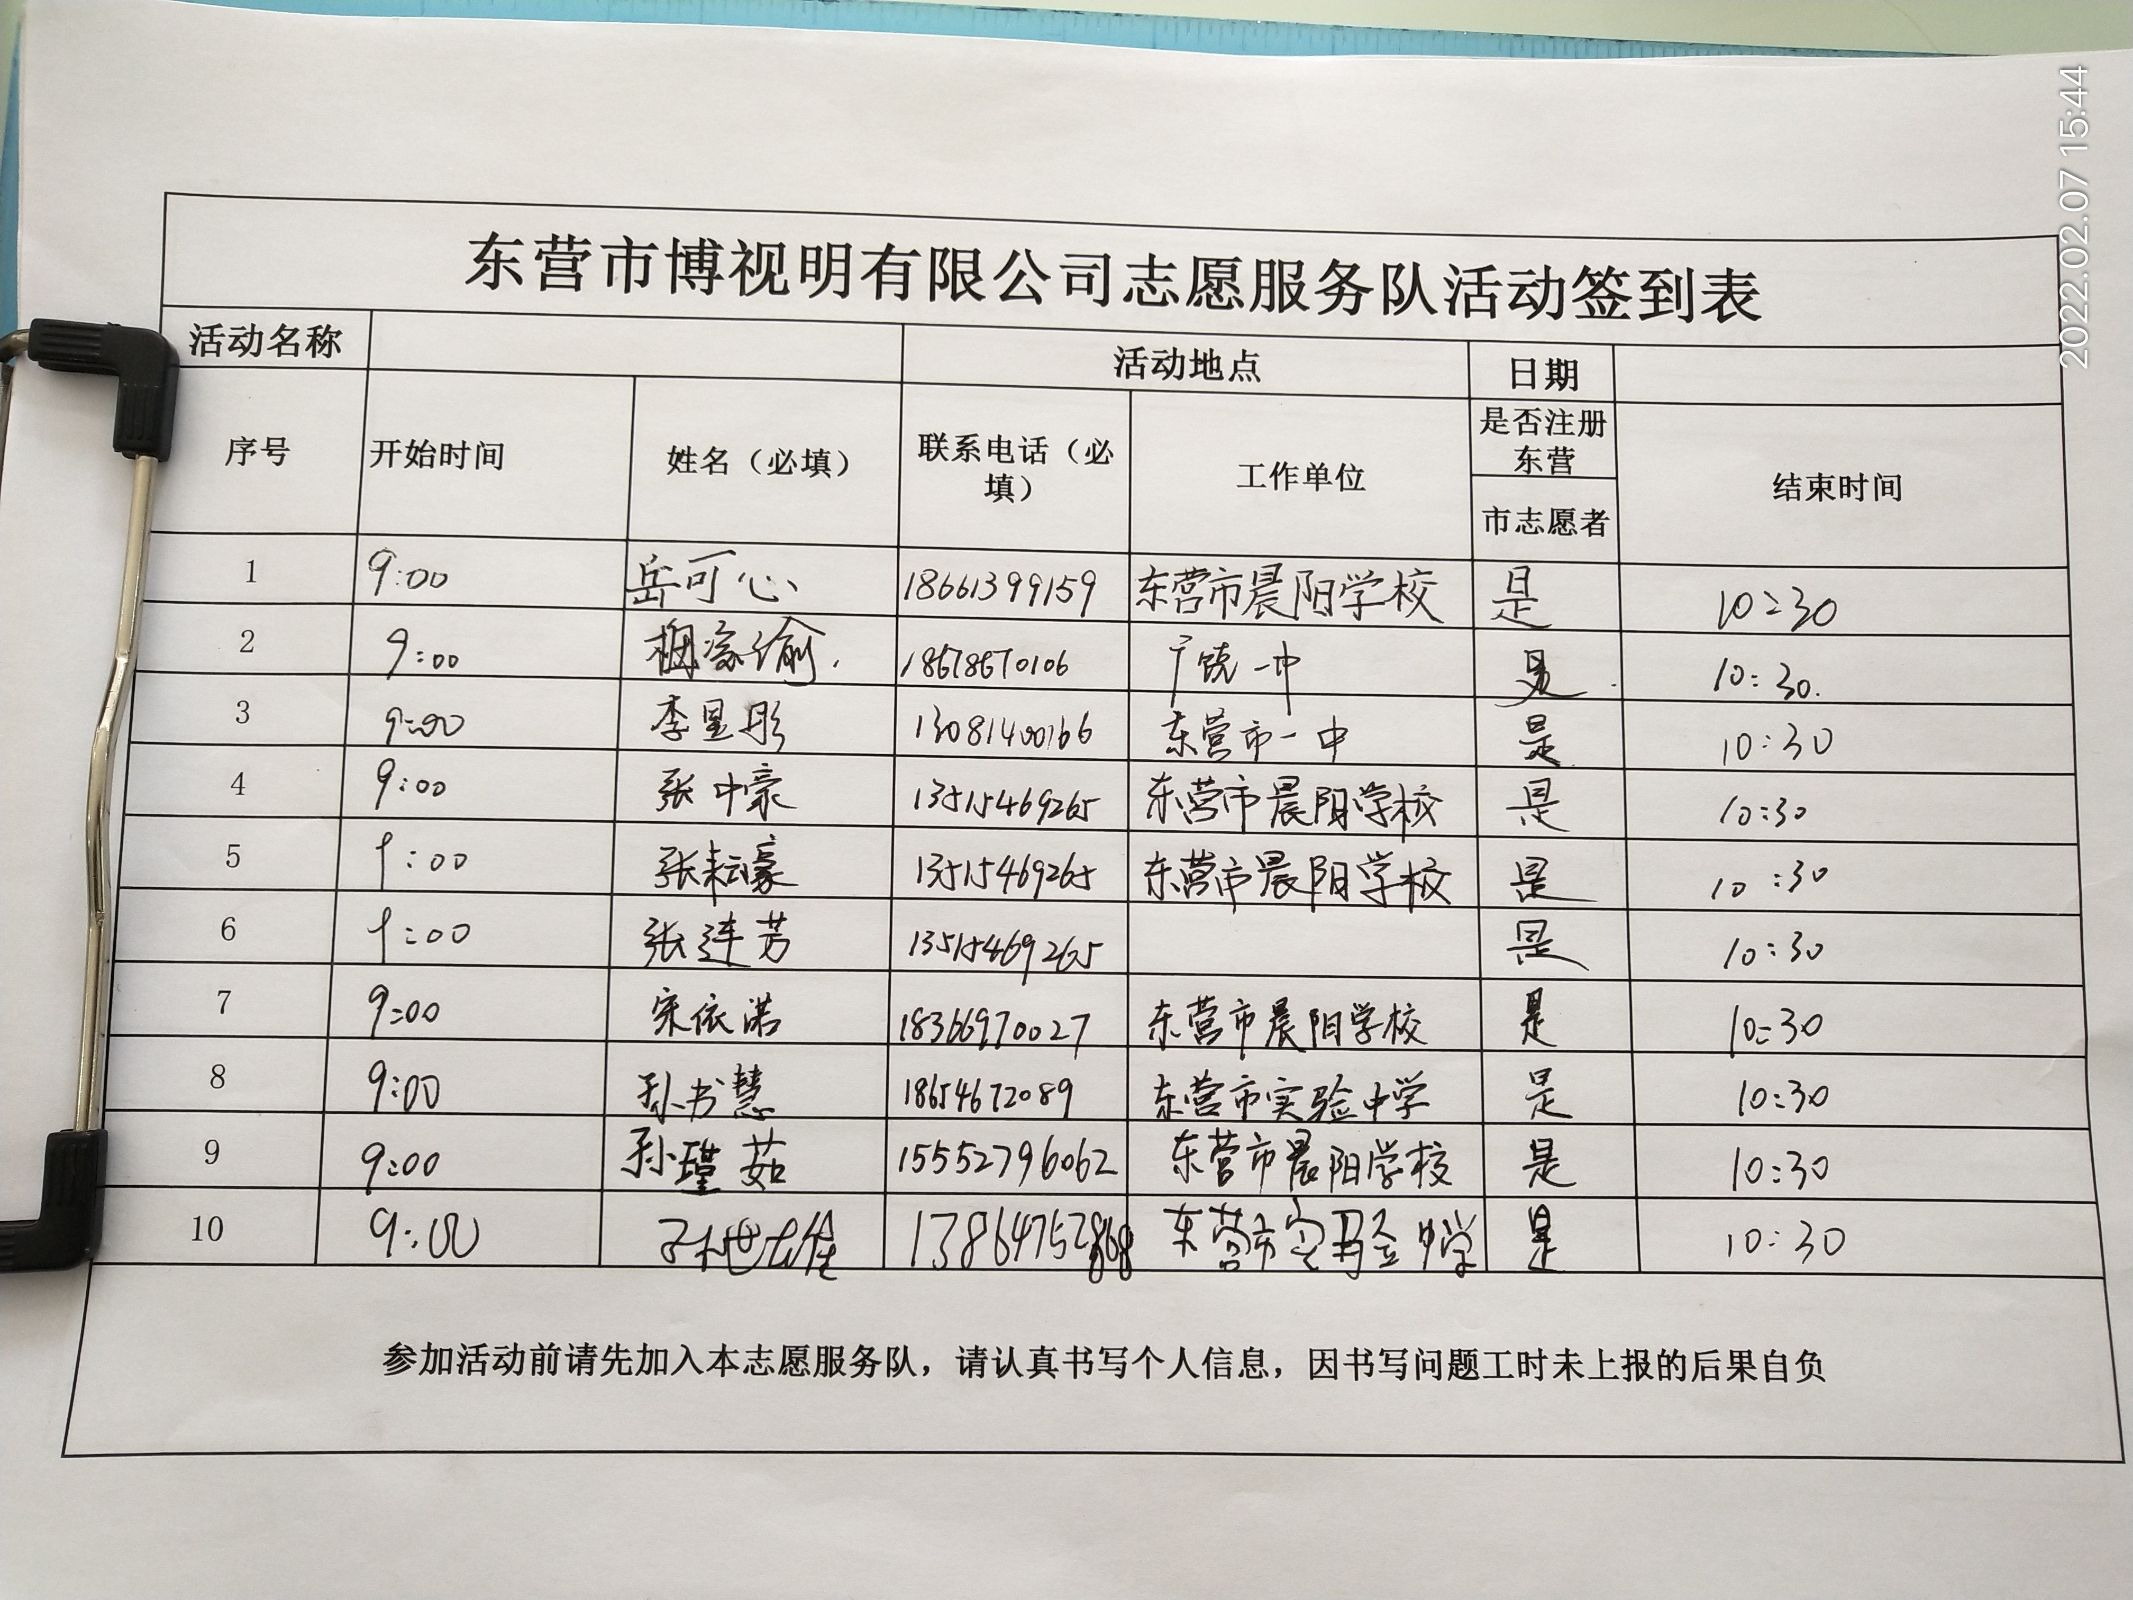 2022.02.07 15:44
东营市博视明有限公司志愿服务队活动签到表
活动名称 活动地点 日期
序号 开始时间 姓名（必填） 联系电话（必填） 工作单位 是否注册东营市志愿者 结束时间
1 9:00 岳可心 18661399159 东营市晨阳学校 是 10:30
2 9:00 18678670106 广饶一中 是 10:30.
3 9:00 李昱彤 13081400166 东营市一中 是 10:30
4 9:00 张中豪 13515469265 东营市晨阳学校 是 10:30
5 9:00 张耘豪 13515469265 东营市晨阳学校 是 10:30
6 9:00 张连芳 13515469265 是 10:30
7 9:00 宋依诺 18366970027 东营市晨阳学校 是 10:30
8 9:00 孙书慧 18654672089 东营市实验中学 是 10:30
9 9:00 孙瑾茹 15552796062 东营市晨阳学校 是 10:30
10 9:00 东营市实验中学 是 10:30
参加活动前请先加入本志愿服务队，请认真书写个人信息，因书写问题工时未上报的后果自负